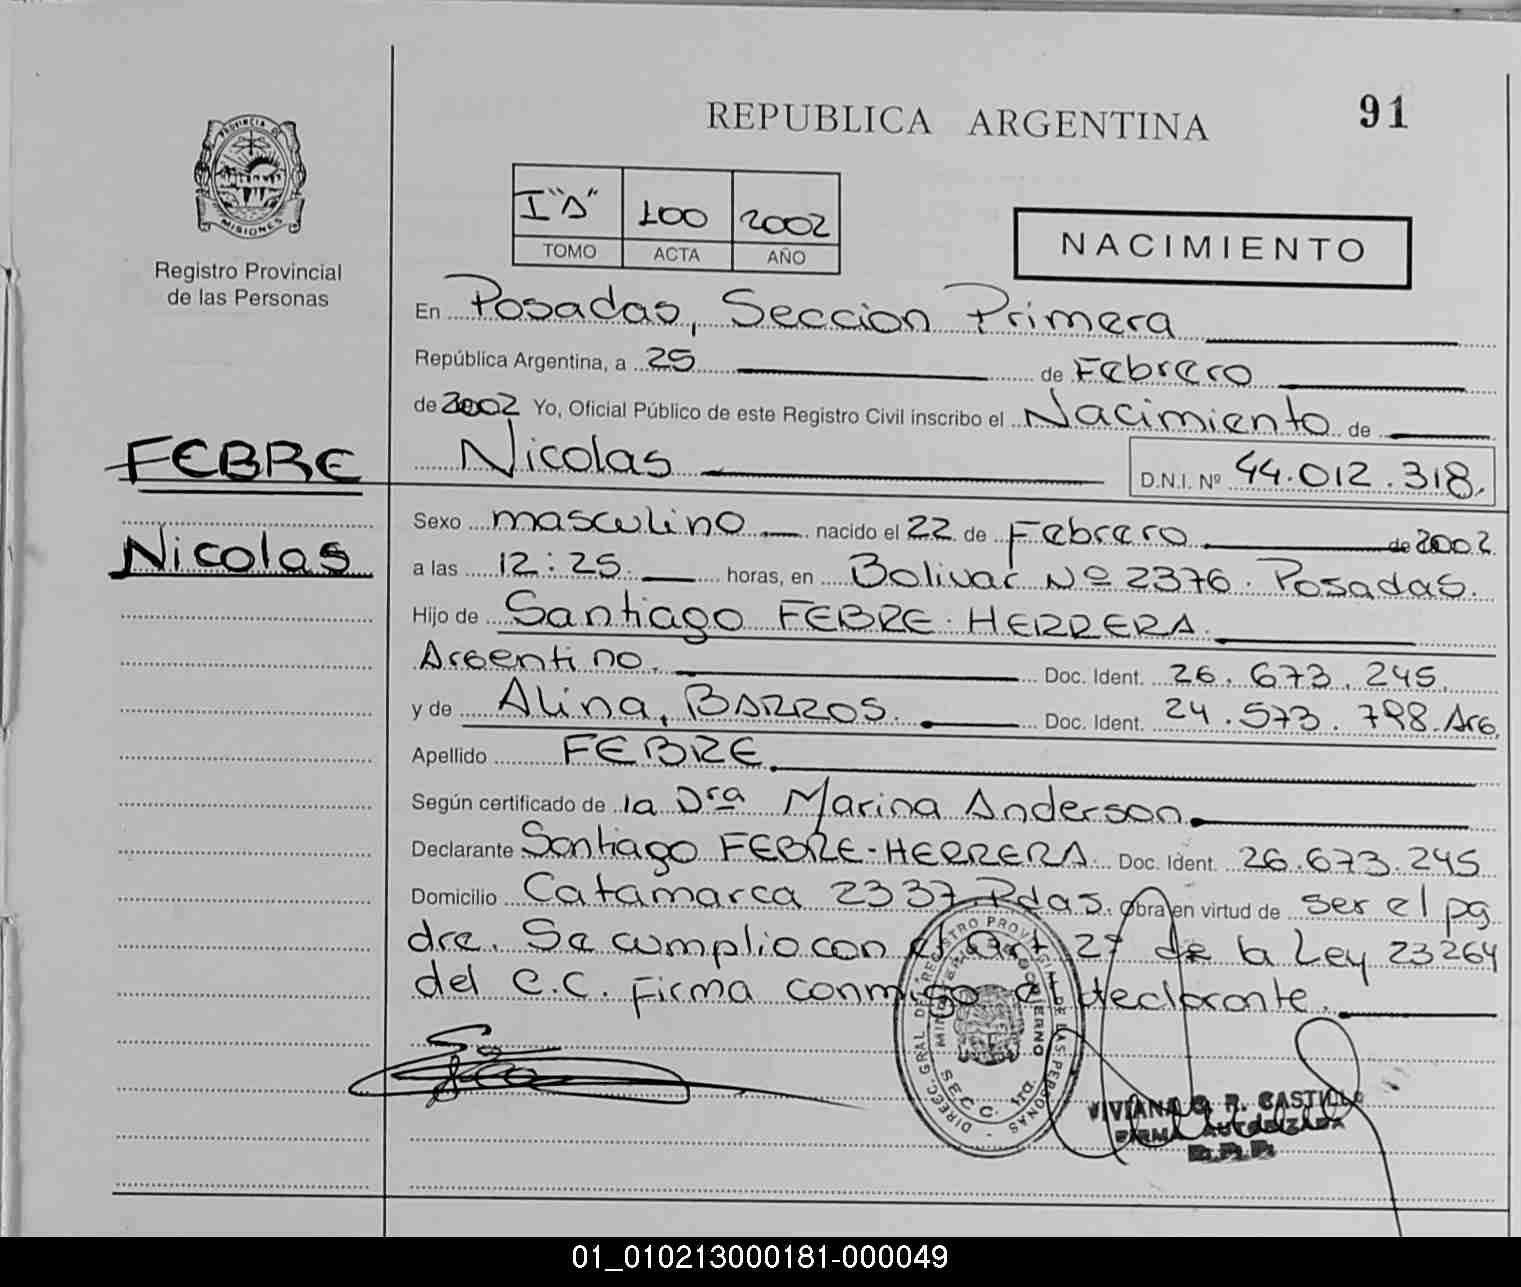 REPUBLICA ARGENTINA
91
PROVINCIA DE
MISIONES
Registro Provincial
de las Personas
I "A" 100 2002
TOMO ACTA AÑO
NACIMIENTO
En Posadas, Seccion Primera
República Argentina, a 25 de Febrero
de 2002 Yo, Oficial Público de este Registro Civil inscribo el Nacimiento de
FEBRE
Nicolas
Nicolas D.N.I. Nº 44.012.318.
Sexo masculino nacido el 22 de Febrero de 2002
a las 12:25 horas, en Bolivar Nº 2376. Posadas.
Hijo de Santiago FEBRE-HERRERA
Argentino. Doc. Ident. 26.673.245
y de Alina, BARROS. Doc. Ident. 24.573.798. Arg.
Apellido FEBRE
Según certificado de la Dra Marina Anderson
Declarante Santiago FEBRE-HERRERA Doc. Ident. 26.673.245
Domicilio Catamarca 2337 Pdas. Obra en virtud de ser el pa
dre. Se cumplio con el art 2º de la Ley 23264
del C.C. Firma conmigo el declarante.
DIRECC. GRAL. DEL REGISTRO PROVINCIAL DE LAS PERSONAS
MINISTERIO DE GOBIERNO
SECC. 1ra.
VIVIANA G. R. CASTILLO
FIRMA AUTORIZADA
R.P.P.
01_010213000181-000049